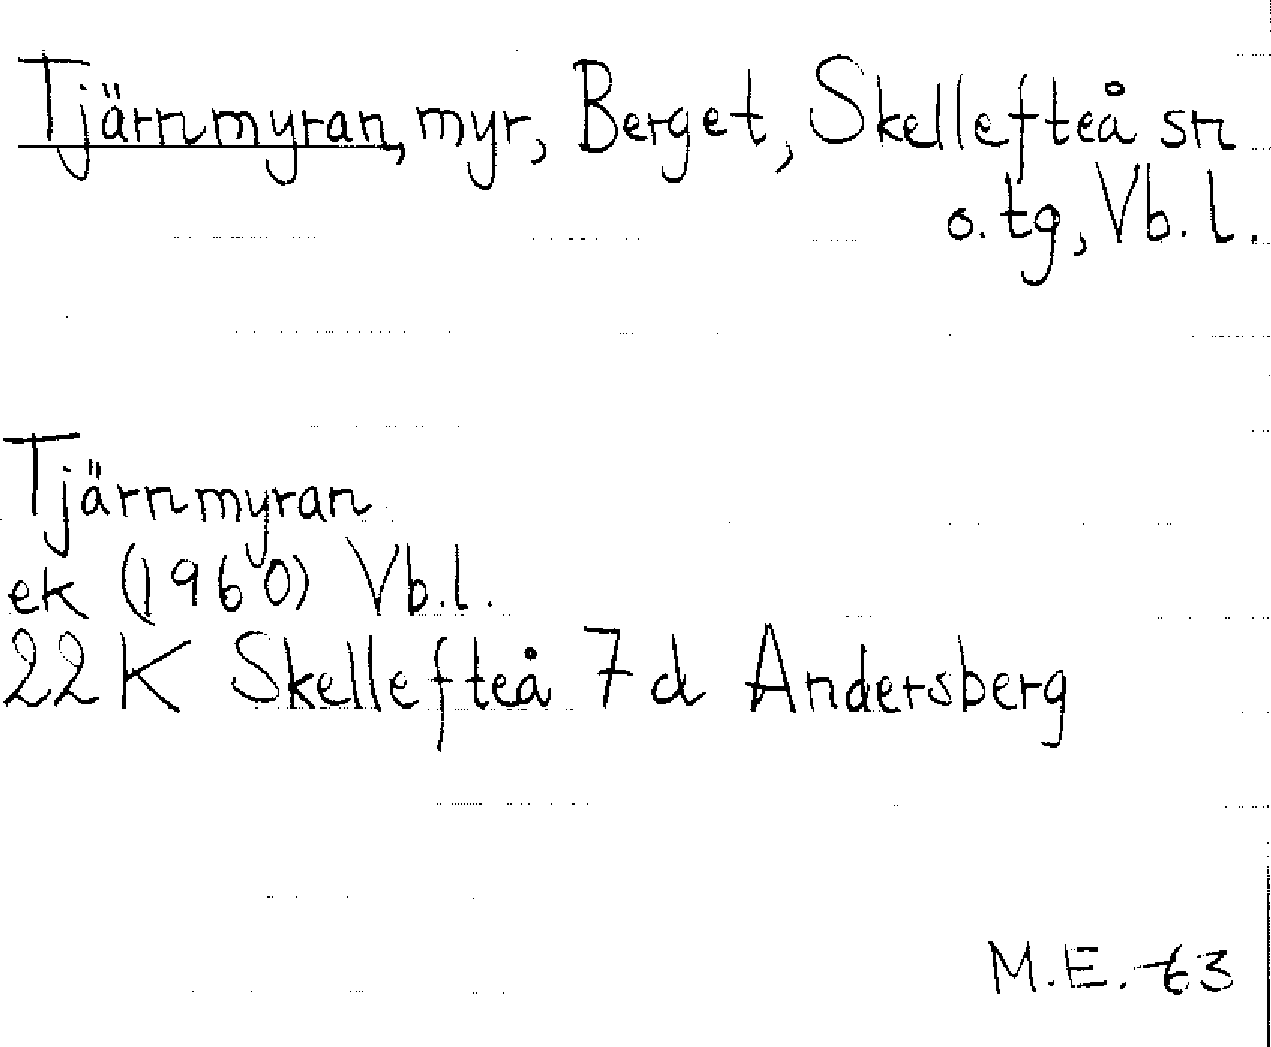 Tjärnmyran, myr, Berget, Skellefteå sn
o. tg, Vb. l.
Tjärnmyran
ek (1960) Vb.l.
22 K Skellefteå 7d Andersberg
M.E. -63